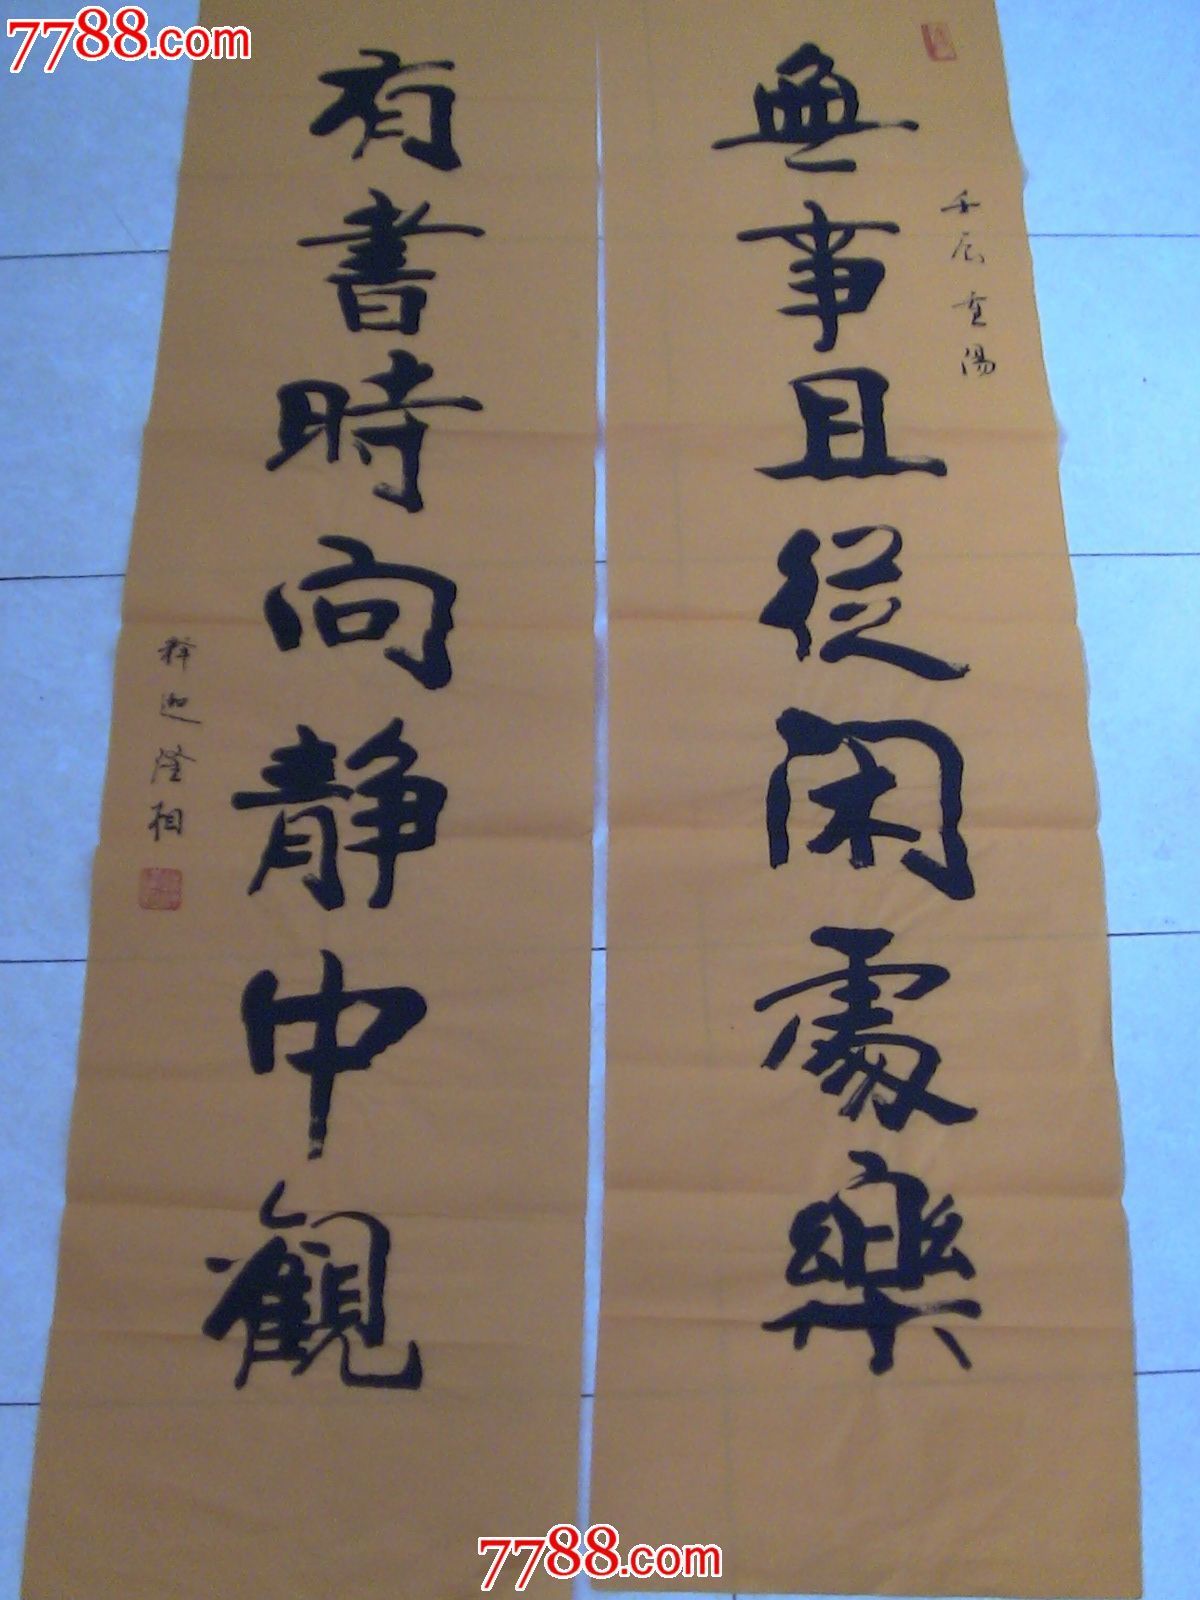 7788.com
壬辰重陽
無事且從闲處樂
有書時向静中觀
释迦相
7788.com